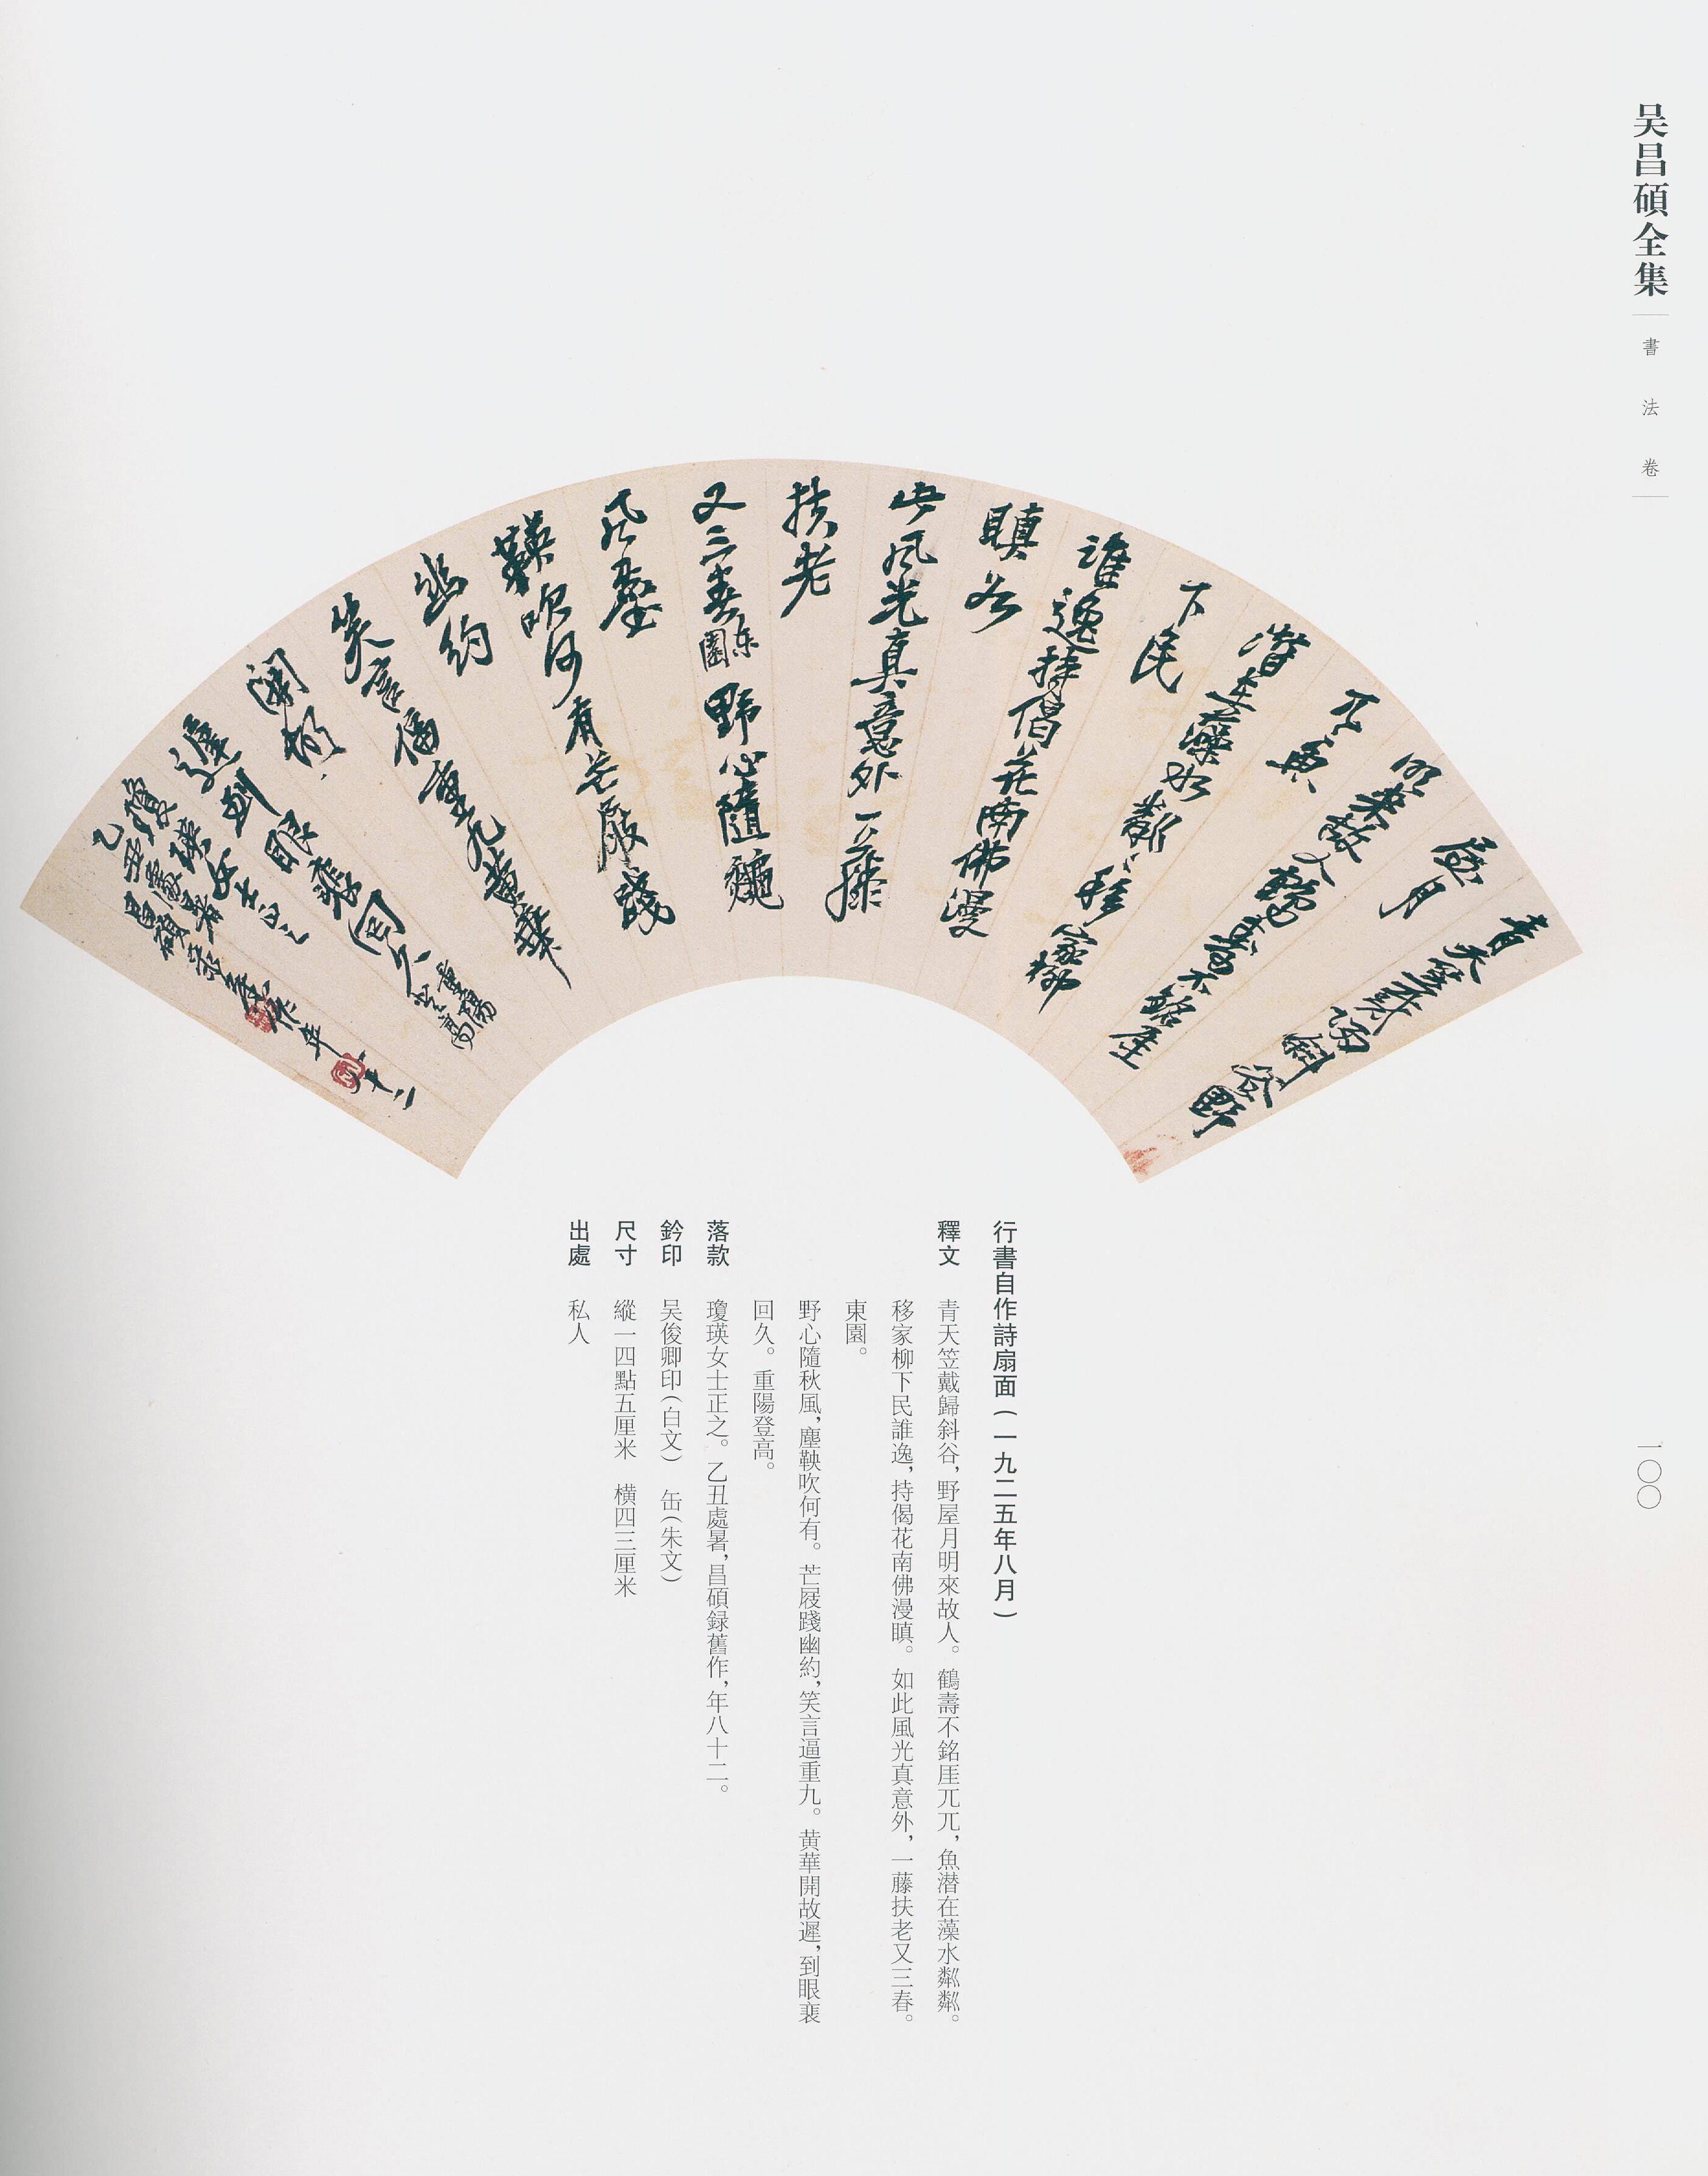 吴昌碩全集
書法卷
青天笠戴歸斜谷野
屋月
明來故人鶴壽不銘厓
兀兀魚
潛在藻水粼粼移家柳
下民
誰逸持偈花南佛漫
瞋如
此風光真意外一藤
扶老
又三春東園野心隨秋
風塵
鞅吹何有芒屐踐
幽約
笑言逼重九黃華
開故
遲到眼裵回久重陽登高
瓊瑛女士正之
乙丑處暑昌碩录舊作年八十二
行書自作詩扇面（一九二五年八月）
釋文 青天笠戴歸斜谷，野屋月明來故人。鶴壽不銘厓兀兀，魚潛在藻水粼粼。
移家柳下民誰逸，持偈花南佛漫瞋。如此風光真意外，一藤扶老又三春。
東園。
野心隨秋風，塵鞅吹何有。芒屐踐幽約，笑言逼重九。黃華開故遲，到眼裵
回久。重陽登高。
落款 瓊瑛女士正之。乙丑處暑，昌碩録舊作，年八十二。
鈐印 吴俊卿印（白文） 缶（朱文）
尺寸 縱一四點五厘米 橫四三厘米
出處 私人
一〇〇